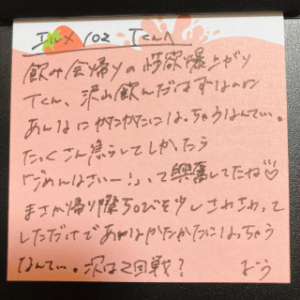 エルメ 102 Tくんへ
飲み会帰りの性欲爆上がり
Tくん、沢山飲んだはずなのに
あんなにかたかたになっちゃうなんて…。
たくさん焦らしてしかたら
「ごめんなさいー!」って興奮してたね♡
まさか帰り際ちびを少しさわさわって
しただけであんなかたかたになっちゃう
なんて…。次は2回戦?